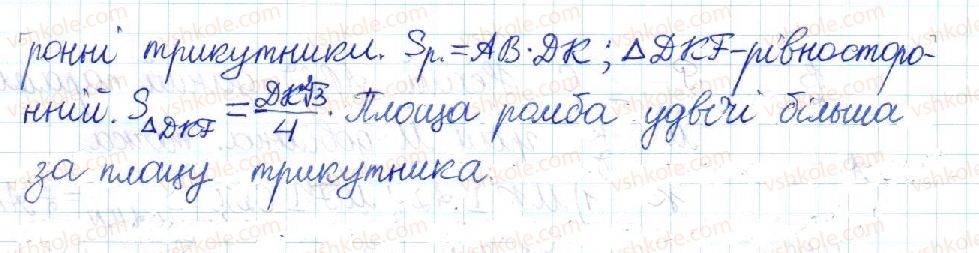 ронні трикутники. Sр. = AB · DK; △DKF - рівносторо-
нній. S△DKF = DK²√3/4. Площа ромба удвічі більша
за площу трикутника.